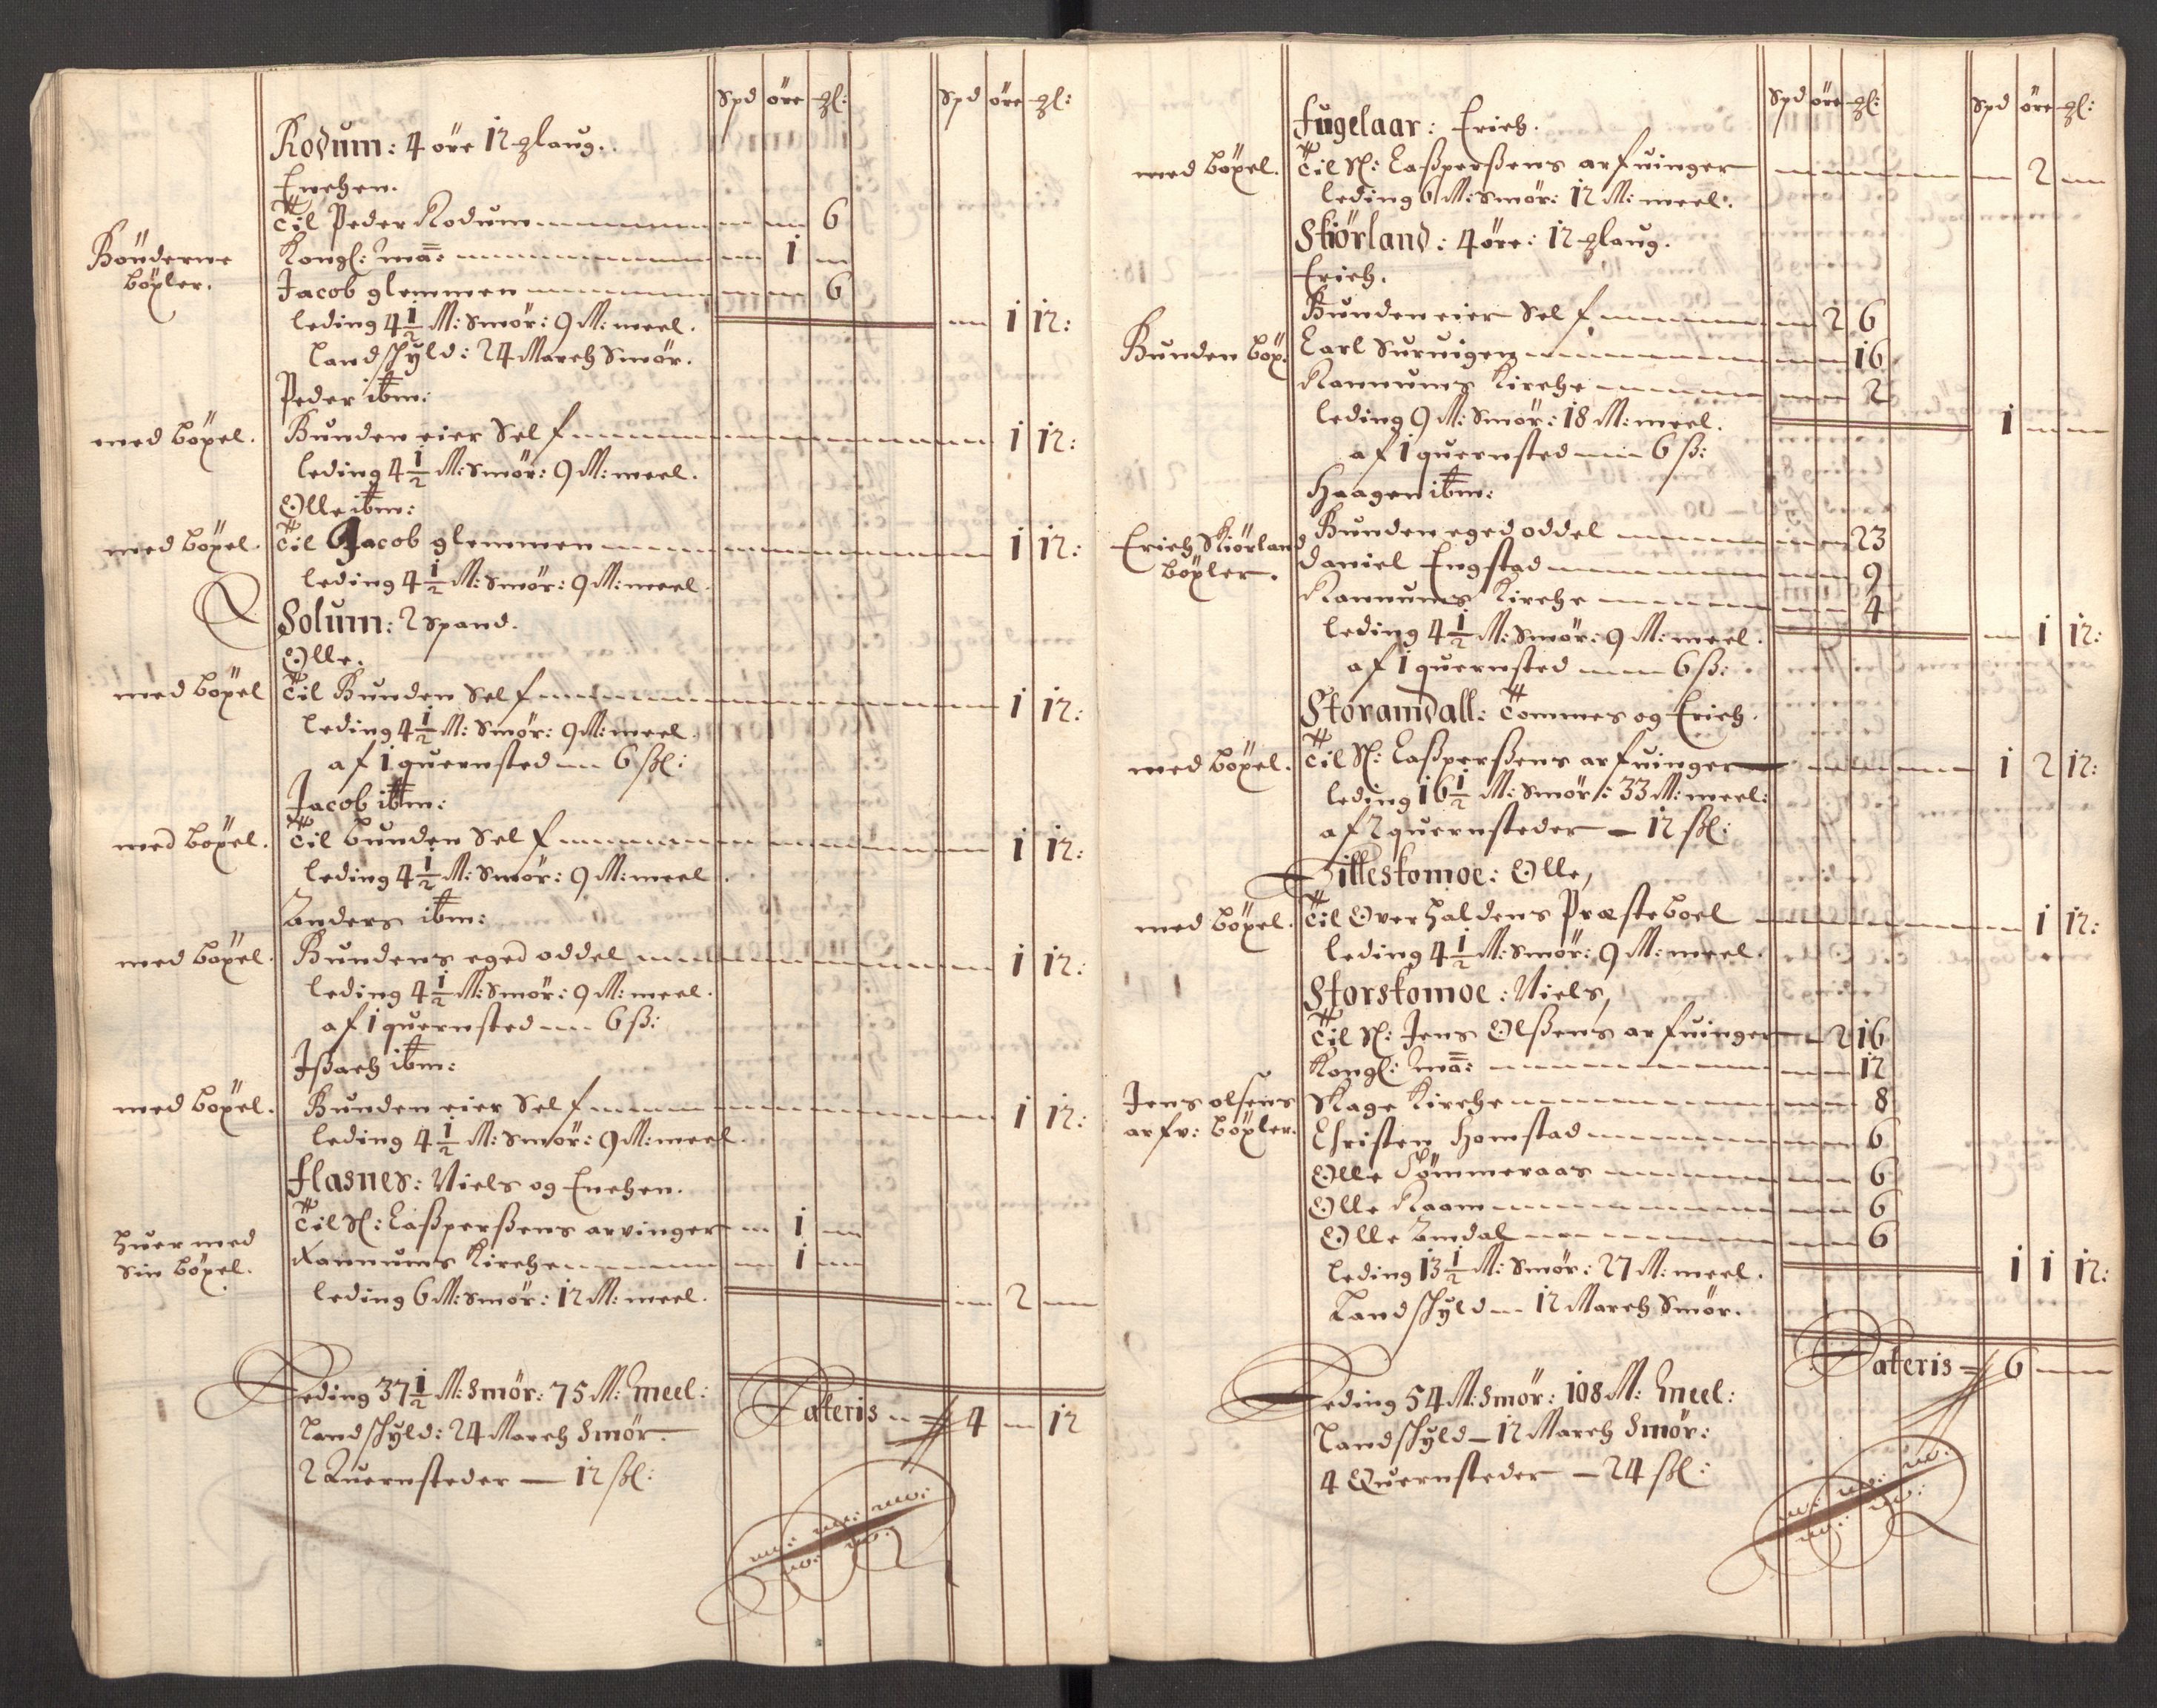 Spd öre
Spd öre
Rodum: 4 öre 12 laug.
Enchen.
Til Peder Rodum 6
Bönderne böxler. Kongl: Ma: 1
Jacob glemmen 6
leding 4 1/2 M: Smör: 9 M: meel. 1 12:
Landskyld: 24 March Smör.
Peder ibm:
med böxel. Bunden eier Self 1 12:
leding 4 1/2 M: Smör: 9 M: meel.
Olle ibm:
med böxel. Til Jacob glemmen 1 12:
leding 4 1/2 M: Smör: 9 M: meel.
Solum: 2 Spand.
Olle.
med böxel Til Bunden Self 1 12:
leding 4 1/2 M: Smör: 9 M: meel.
af 1 quernsted 6 ßl:
Jacob ibm:
med böxel. Til bunden Self 1 12:
leding 4 1/2 M: Smör: 9 M: meel.
Anders ibm:
med böxel. Bundens eged oddel 1 12:
leding 4 1/2 M: Smör: 9 M: meel.
af 1 quernsted 6 ß:
Jßach ibm:
med böxel. Bunden eier Self 1 12:
leding 4 1/2 M: Smör: 9 M: meel.
Flasnes: Niels og Enchen.
Huer med sin böxel. Til Sl: Caßperßens arvinger 1
Rannums Kirche 1
leding 6 M: Smör: 12 M: meel. 2
Leding 37 1/2 M: Smör: 75 M: Meel:
Lateris 4 12
Landskyld: 24 March Smör.
2 Quernsteder — 12 ßl:
Spd öre
Spd öre
Fugelaar: Erich.
med böxel. Til Sl: Caßperßens arfuinger 2
leding 6 M: Smör: 12 M: meel.
Skiörland: 4 öre: 12 laug.
Erich.
Bunden eier Self 2 6
Bunden böx: Carl Survigen 16
Rannums Kirche 2
leding 9 M: Smör: 18 M: meel. 1
af 1 quernsted 6 ß:
Haagen ibm:
Erich Skiörland böxler. Bunden eged oddel 23
Daniel Engstad 9
Rannums Kirche 4
leding 4 1/2 M: Smör: 9 M: meel. 1 12:
af 1 quernsted 6 ß:
Storamdall: Tommes og Erich.
med böxel. Til Sl: Caßperßens arfuinger 1 2 12:
leding 16 1/2 M: Smör: 33 M: meel:
af 2 quernsteder — 12 ßl:
Littleskomoe: Olle,
med böxel. Til Overhaldens Præsteboel 1 12:
leding 4 1/2 M: Smör: 9 M: meel.
Storskomoe: Niels,
Til Sl: Jens Olßens arfuinger 2 16
Kongl: Ma: 12
Jens olsens arfv: böxler. Skage Kirche 8
Christen Homstad 6
Olle Tömmeraas 6
Olle Raam 6
Olle Amdal 6
leding 13 1/2 M: Smör: 27 M: meel. 1 1 12:
Landskyld 12 March Smör.
Lateris 6
Leding 54 M: Smör: 108 M: Meel:
Landskyld — 12 March Smör:
4 Quernsteder — 24 ßl: